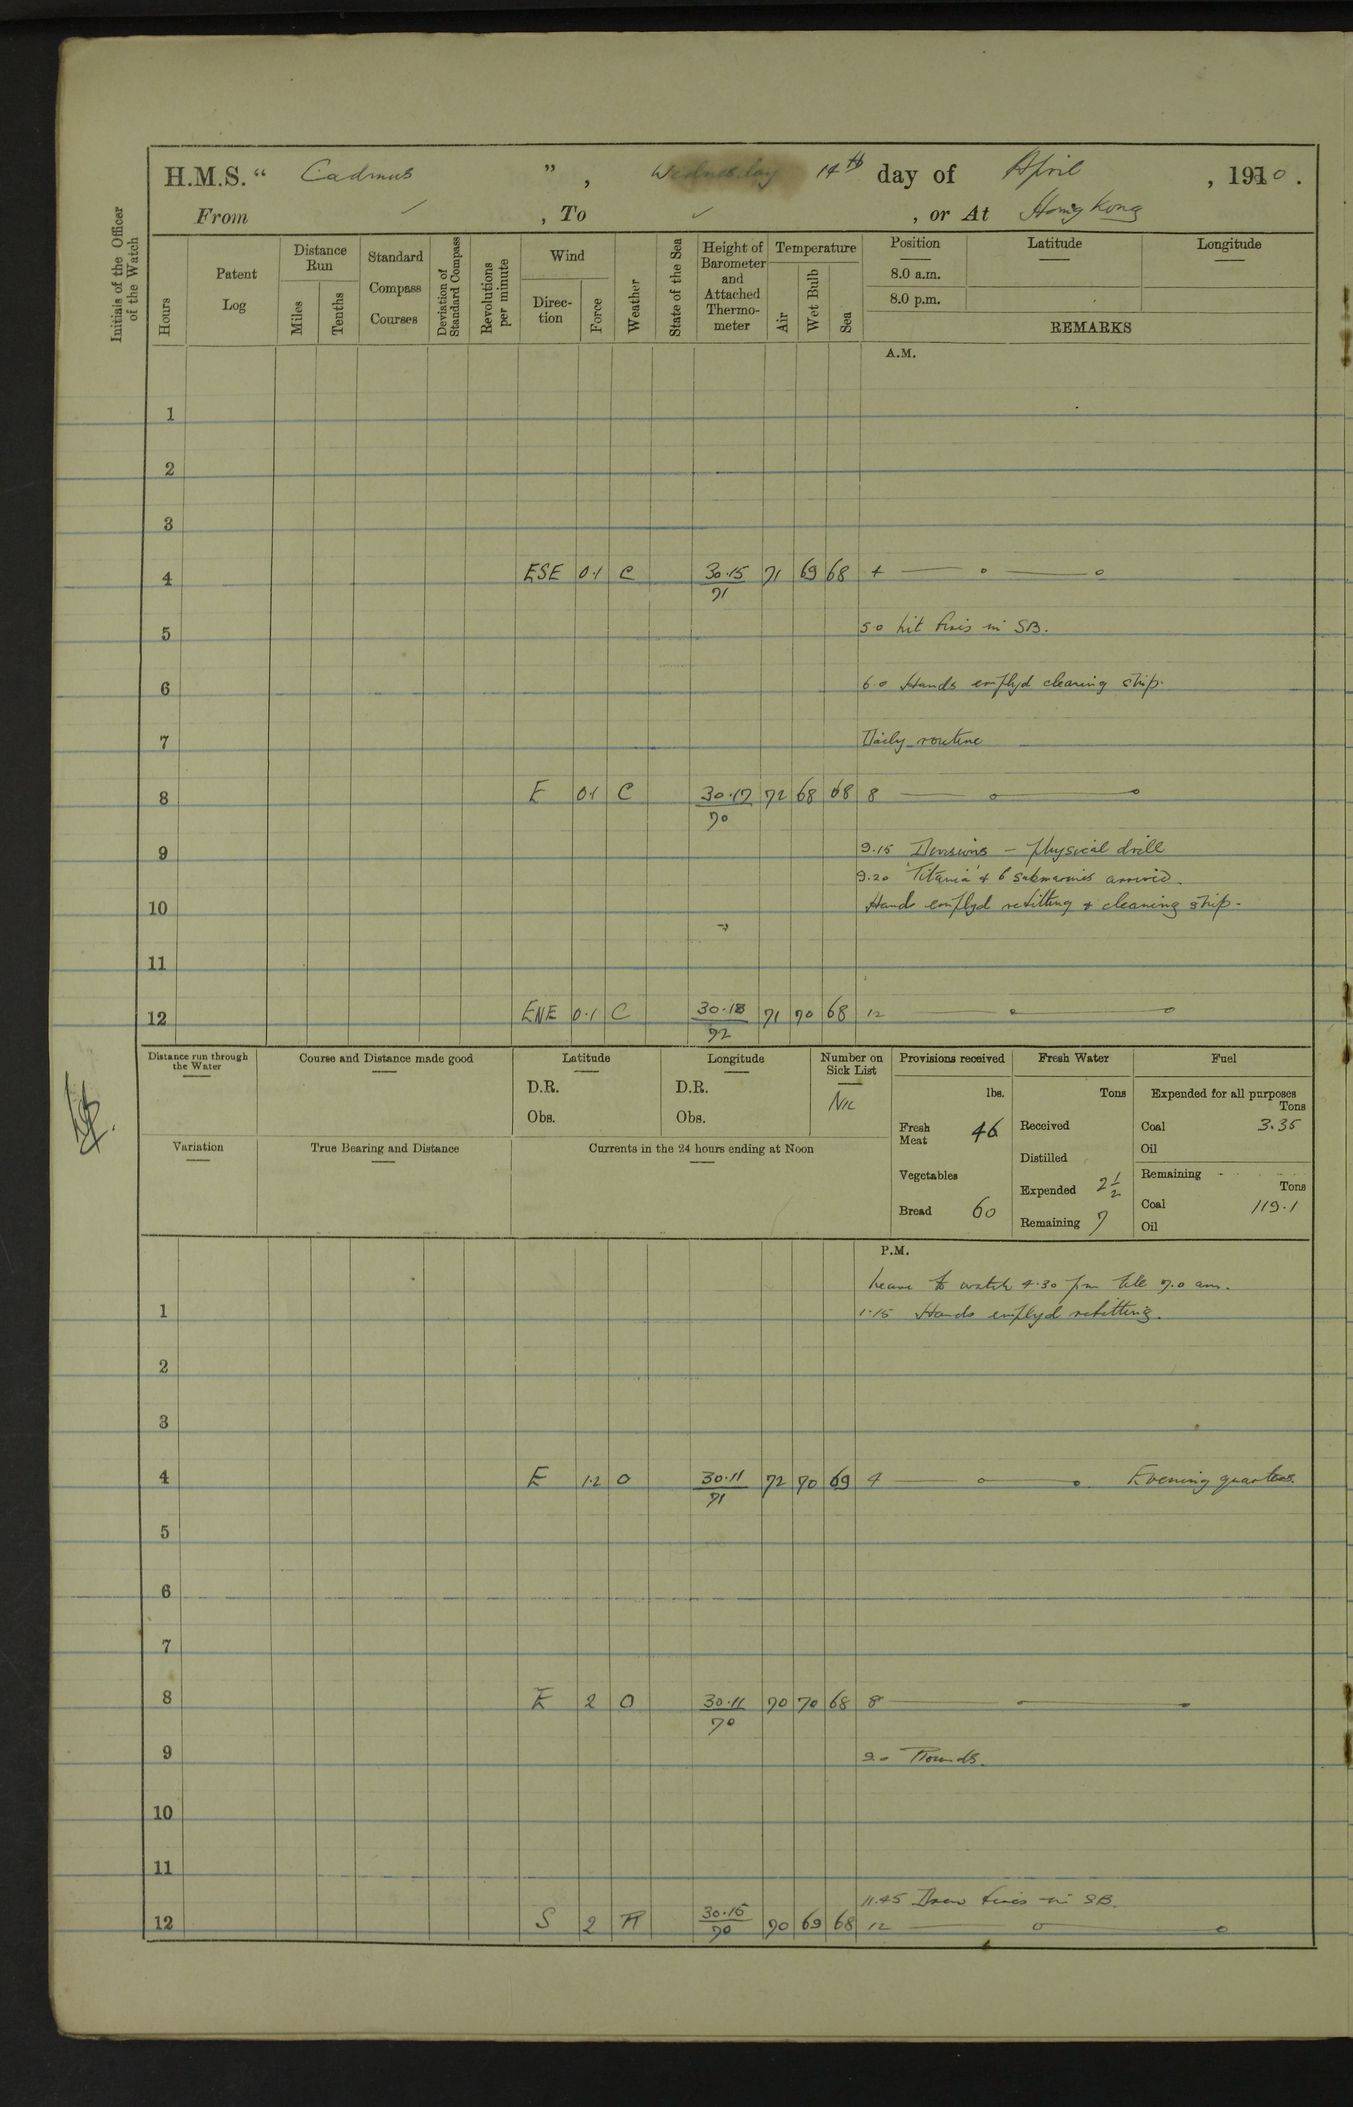 H.M.S. “ Cadmus ” , Wednesday 14th day of April , 1920 .
From ✓ , To ✓ , or At Hong Kong
Initials of the Officer of the Watch
Hours
Patent Log
Distance Run
Miles
Tenths
Standard Compass Courses
Deviation of Standard Compass
Revolutions per minute
Wind
Direc-tion
Force
Weather
State of the Sea
Height of Barometer and Attached Thermo-meter
Temperature
Air
Wet Bulb
Sea
Position Latitude Longitude
8.0 a.m.
8.0 p.m.
REMARKS
A.M.
1
2
3
4 ESE 0.1 C 30.15/71 71 69 68 4
5 5.0 Lit fires in SB.
6 6.0 Hands employd cleaning ship.
7 Daily routine
8 E 0.1 C 30.17/70 72 68 68 8
9 9.15 Divisions – physical drill
9.20 'Titania' & 6 submarines arrived.
10 Hands employd refitting & cleaning ship.
11
12 ENE 0.1 C 30.18/72 71 70 68 12
Distance run through the Water
Course and Distance made good
Latitude
D.R.
Obs.
Longitude
D.R.
Obs.
Number on Sick List
Nil
Provisions received
lbs.
Fresh Meat 46
Vegetables
Bread 60
Fresh Water
Tons
Received
Distilled
Expended 2 1/2
Remaining 7
Fuel
Expended for all purposes
Tons
Coal 3.35
Oil
Remaining
Tons
Coal 119.1
Oil
Variation
True Bearing and Distance
Currents in the 24 hours ending at Noon
P.M.
Leave to watch 4.30 pm till 7.0 am.
1 1.15 Hands employd refitting.
2
3
4 E 1.2 O 30.11/71 72 70 69 4 Evening quarters.
5
6
7
8 E 2 O 30.11/70 70 70 68 8
9 9.0 Rounds.
10
11
11.45 Drew fires in SB.
12 S 2 R 30.15/70 70 69 68 12